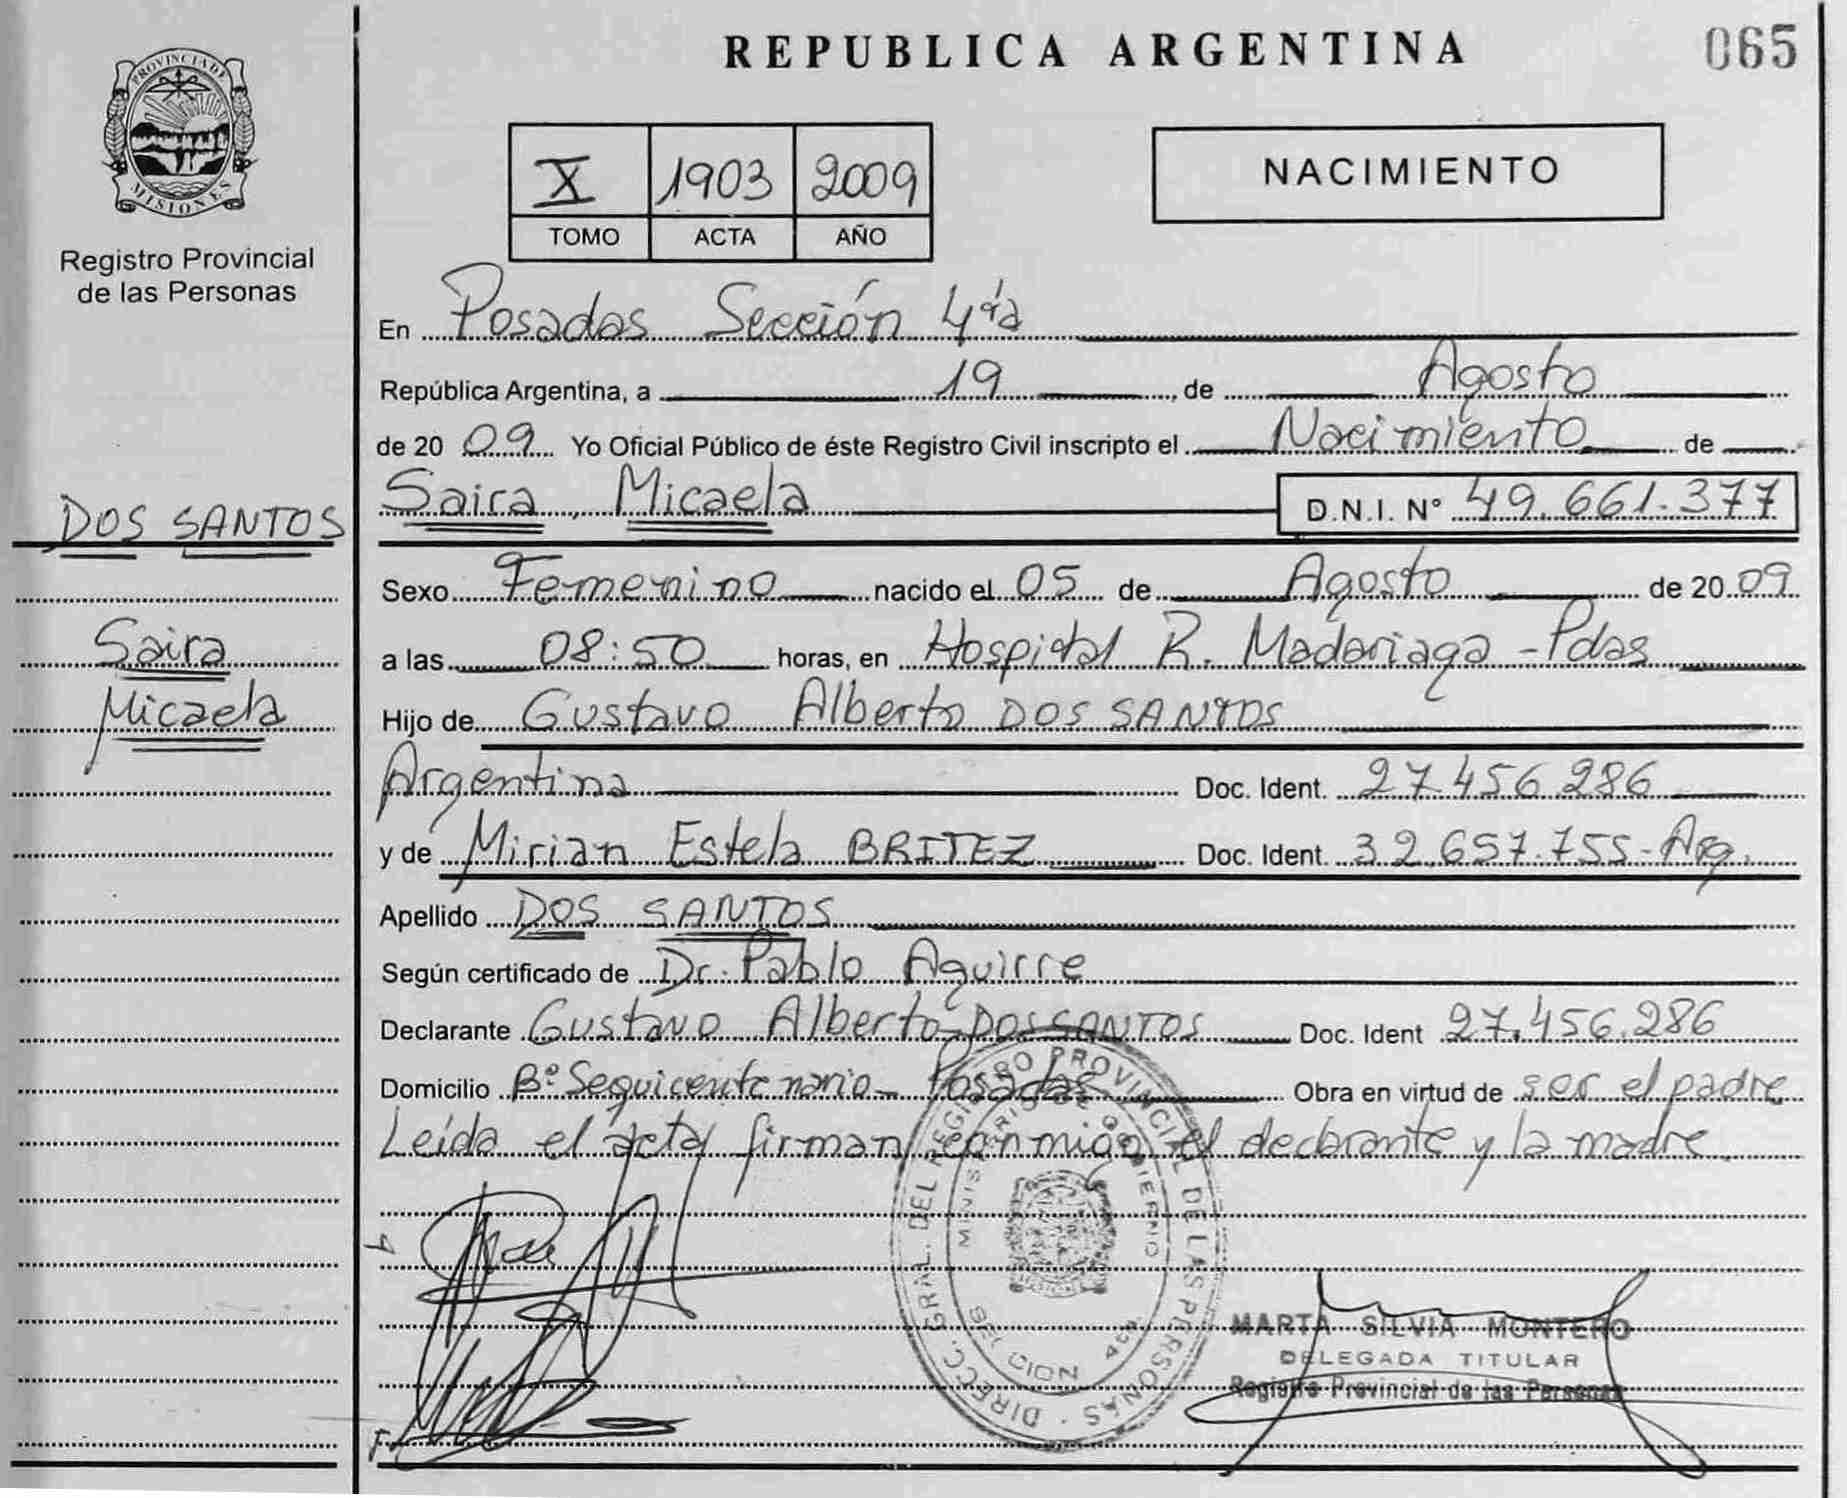 REPUBLICA ARGENTINA
065
PROVINCIA DE
MISIONES
Registro Provincial
de las Personas
X 1903 2009
TOMO ACTA AÑO
NACIMIENTO
En Posadas Sección 4ta
República Argentina, a 19, de Agosto
de 20 09 Yo Oficial Público de éste Registro Civil inscripto el Nacimiento de
Saira, Micaela D.N.I. N° 49.661.377
DOS SANTOS
Saira
Micaela
Sexo Femenino nacido el 05 de Agosto de 20 09
a las 08:50 horas, en Hospital R. Madariaga - Pdas
Hijo de Gustavo Alberto DOS SANTOS
Argentina Doc. Ident. 27.456.286
y de Mirian Estela BRITEZ Doc. Ident. 32.657.755 - Arg.
Apellido DOS SANTOS
Según certificado de Dr. Pablo Aguirre
Declarante Gustavo Alberto DOS SANTOS Doc. Ident 27.456.286
Domicilio B° Sequicentenario - Posadas Obra en virtud de ser el padre
Leída el acta, firman conmigo, el declarante y la madre.
DIRECC. GRAL. DEL REGISTRO PROVINCIAL DE LAS PERSONAS
MINISTERIO DE GOBIERNO
SECCION 4ta
MARTA SILVIA MONTERO
DELEGADA TITULAR
Registro Provincial de las Personas